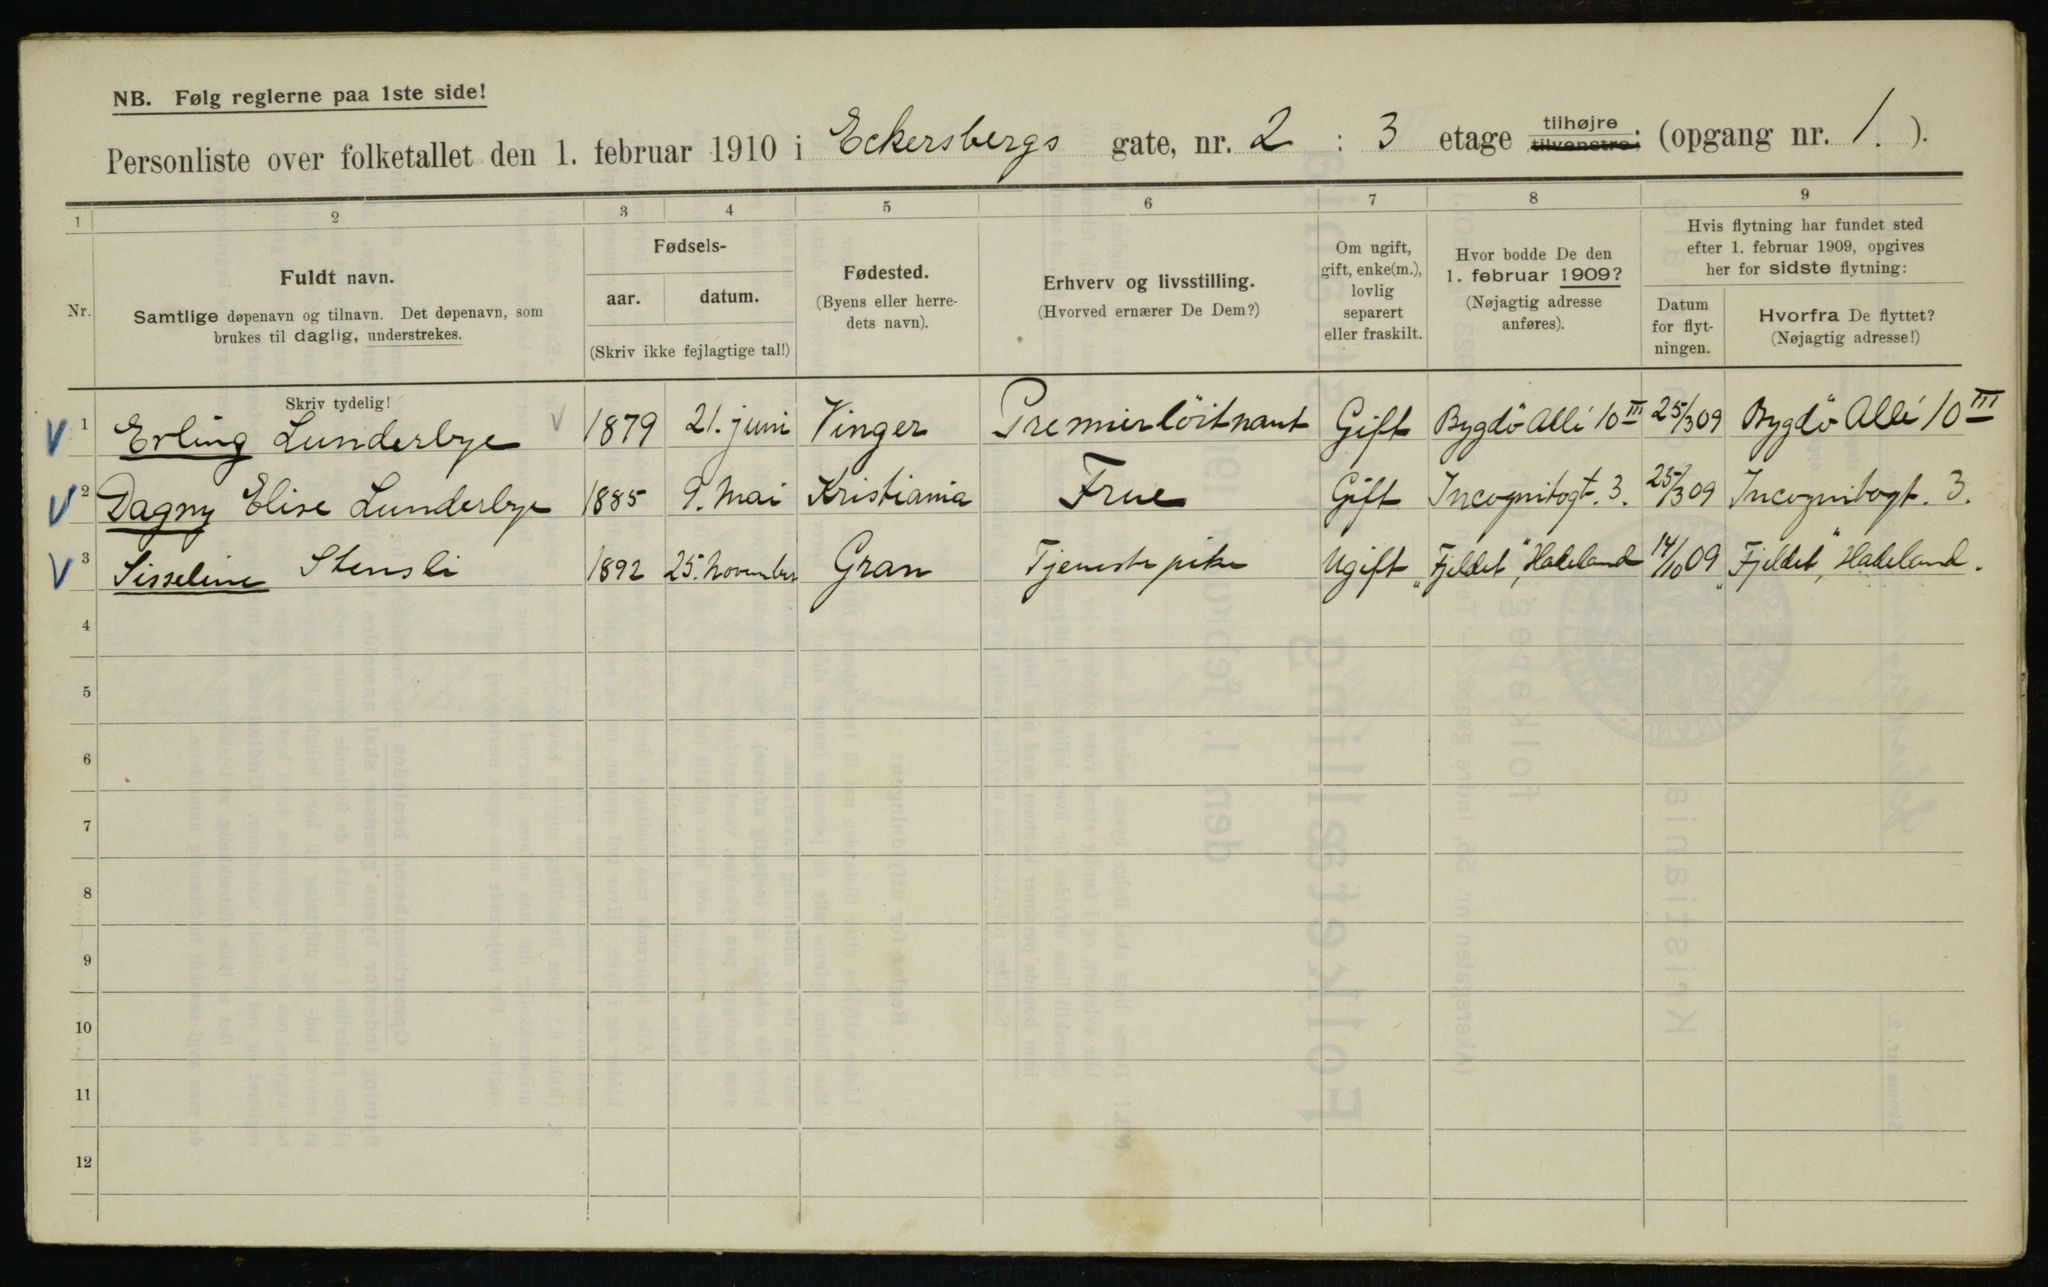 NB. Følg reglerne paa 1ste side!
Personliste over folketallet den 1. februar 1910 i Eckersbergs gate, nr. 2 : 3 etage tilhøjre tilvenstre: (opgang nr. 1. ).
1 2 3 4 5 6 7 8 9
Nr.
Fuldt navn.
Samtlige døpenavn og tilnavn. Det døpenavn, som
brukes til daglig, understrekes.
Skriv tydelig!
Fødsels-
aar. datum.
(Skriv ikke fejlagtige tal!)
Fødested.
(Byens eller herre-
dets navn).
Erhverv og livsstilling.
(Hvorved ernærer De Dem?)
Om ugift,
gift, enke(m.),
lovlig
separert
eller fraskilt.
Hvor bodde De den
1. februar 1909?
(Nøjagtig adresse
anføres).
Hvis flytning har fundet sted
efter 1. februar 1909, opgives
her for sidste flytning:
Datum
for flyt-
ningen.
Hvorfra De flyttet?
(Nøjagtig adresse!)
V 1 Erling Lunderbye V 1879 21. juni Vinger Premierlöitnant Gift Bygdö Allé 10 III 25/3 09 Bygdö Allé 10 III
V 2 Dagny Elise Lunderbye 1885 9. Mai Kristiania Frue Gift Incognitogt. 3. 25/3 09 Incognitogt. 3.
V 3 Sisseline Stensli 1892 25. November Gran Tjenestepike Ugift „Fjeldet", Hadeland 14/10 09 „Fjeldet", Hadeland.
4
5
6
7
8
9
10
11
12